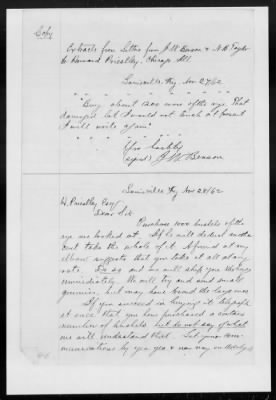 Copy
Extracts from letters from J. W. Benson & N. B. Taylor
to Howard Priestley, Chicago Ill.
Louisville, Ky Nov. 27/62
" " " " " " " "
"Buy about 1200 more of the rye. That
damaged lot I would not touch at present
I will write again"
Yrs Truly
signed J. W. Benson
Louisville Ky Nov 28/62
H. Priestley Esq
Dear Sir
Purchase 1000 bushels of the
rye we looked at. If he will declined
but take the whole of it. A friend at my
elbow suggests that you take it all at any
rate. Do so and we will ship you the bags
immediately. We will try and send small
gunnies, but may have to send the large ones
If you succeed in buying it, telegraph
at once that you have purchased a certain
number of bushels but do not say of what
we will understand that. Let your com-
munications by yea yea & nay nay